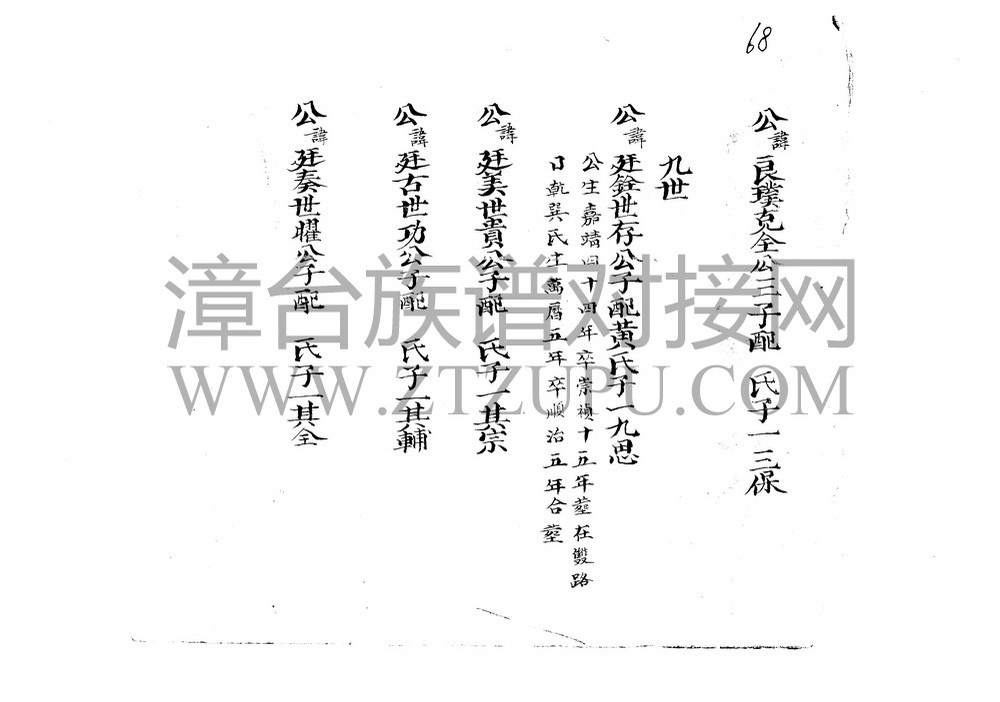 68
公諱良璞克全公三子配 氏子一三保
九世
公諱廷銓世存公子配黃氏子一九思
公生嘉靖四十四年卒崇禎十五年塟在雙路
口乾巽氏生萬曆五年卒順治五年合塟
公諱廷美世貴公子配 氏子一其宗
公諱廷古世功公子配 氏子一其輔
公諱廷奏世曜公子配 氏子一其全
漳台族谱对接网
WWW.ZTZUPU.COM